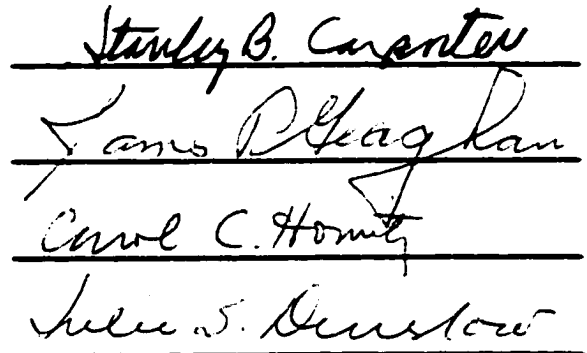 Stanley B. Carpenter
James P. Geaghan
Carol C. Horvitz
Julie S. Denslow